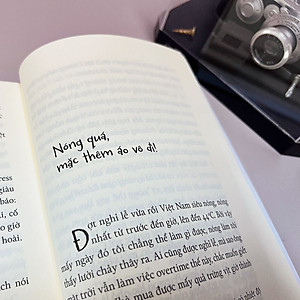 ress
giàu
báo:
ết
í, cố
o giờ
hoài.
nói
Nóng quá,
mặc thêm áo vô đi!
Đợt nghỉ lễ vừa rồi Việt Nam siêu nóng, nóng
nhất từ trước đến giờ, lên đến 44°C. Rồi vậy
mấy ngày đó tôi chẳng thể làm gì được, nóng làm tôi
thấy lười chảy thây ra. Ai cũng được nghỉ lễ, mà sao ông
mặt trời vẫn làm việc overtime thế này, chắc muốn
mua được mấy quả trứng vịt